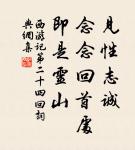 見性志誠
念念回首處
即是靈山
西游記第二十四回詞
典網集